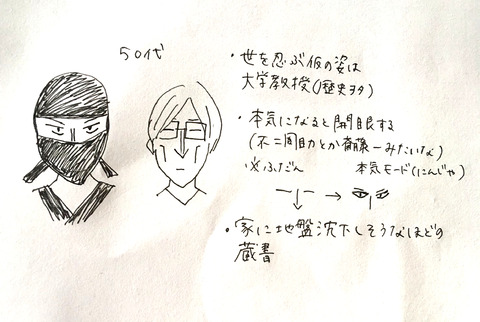 50代
・世を忍ぶ仮の姿は
大学教授(歴史ヲタ)
・本気になると開眼する
(不二周助とか斎藤一みたいな)
※ふだん 本気モード(にんじゃ)
→
・家に地盤沈下しそうなほどの
蔵書